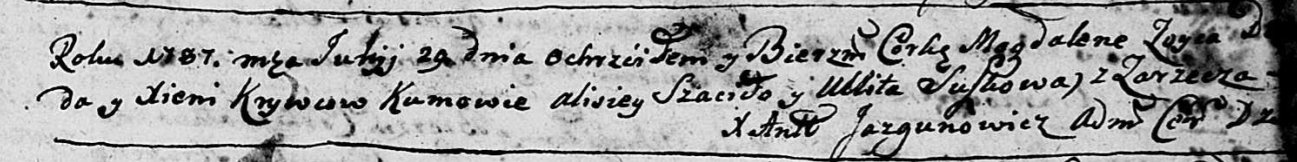 Roku 1787. mca Julij 29 dnia ochrzciłem y Bierzm Corkę Magdalenę
da y Xieni Krywcow Kumowie Alixiey Szaciło y Ullita Suszkowa z Zarzecza
X Antt Jazgunowicz Adm Cer Dz